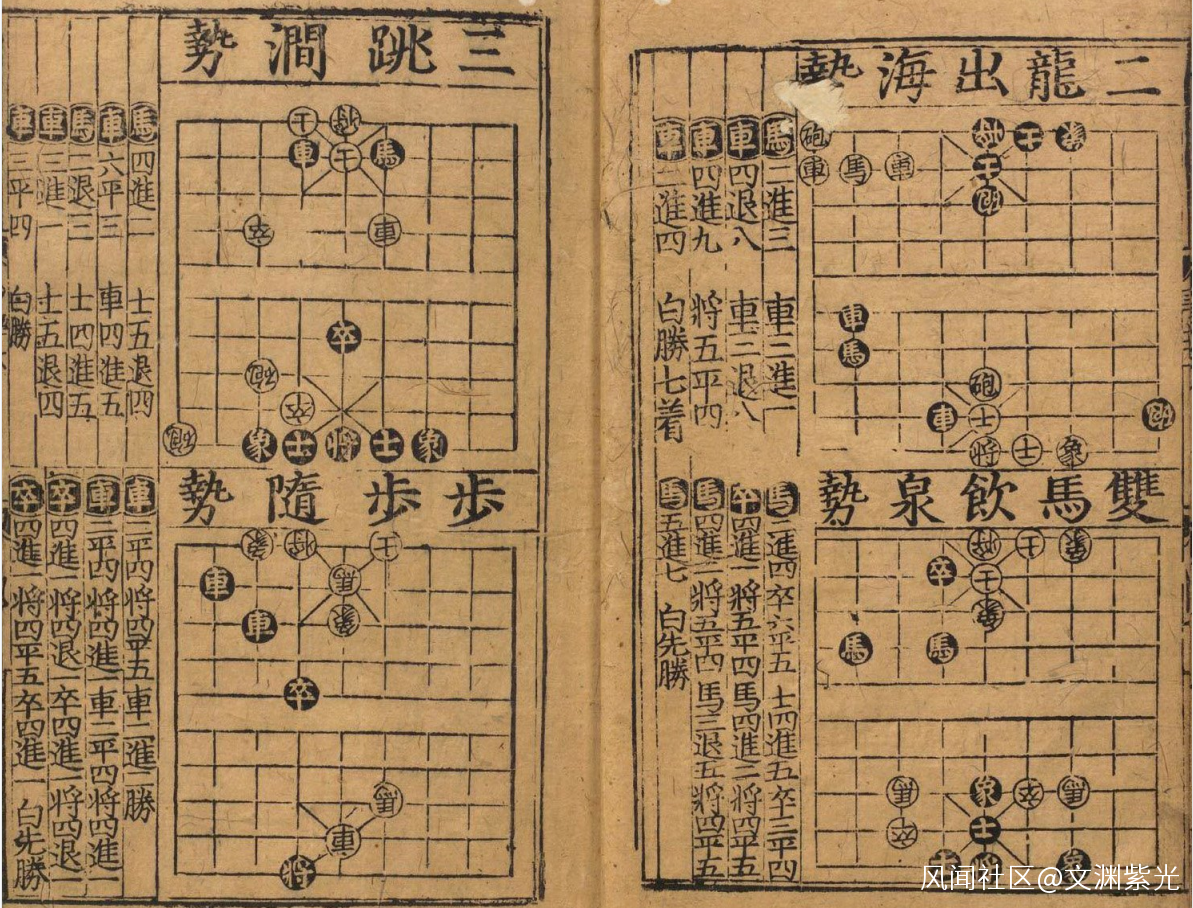 二龍出海勢
砲 將 士 象
車 馬 車 士
砲
車
馬
砲
車 士 砲
將 士 象
馬二進三 車二進一
車四退八 車二退八
車四進九 將五平四
車二進四 白勝七着
雙馬飲泉勢
將 士 象
卒 士
象
馬 馬
馬 象 卒 馬
卒 士
士 將 象
馬二進四卒六平五士四進五卒三平四
卒四進一將五平四馬四進二將四平五
馬四進二將五平四馬三退五將四平五
馬五進七 白先勝
三跳澗勢
士 將
車 士 馬
卒 車
卒
砲
卒
砲 象 士 將 士 象
馬四進二 士五退四
車六平三 車四進五
馬二退三 士四進五
車三進一 士五退四
車三平四 白勝
歩歩隨勢
象 將 士
車 馬
車 象
卒
馬
車
將
車二平四將四平五車二進二勝
車二平四將四進一車二平四將四進一
卒四進一將四退一卒四進一將四退一
卒四進一將四平五卒四進一 白先勝
风闻社区@文渊紫光